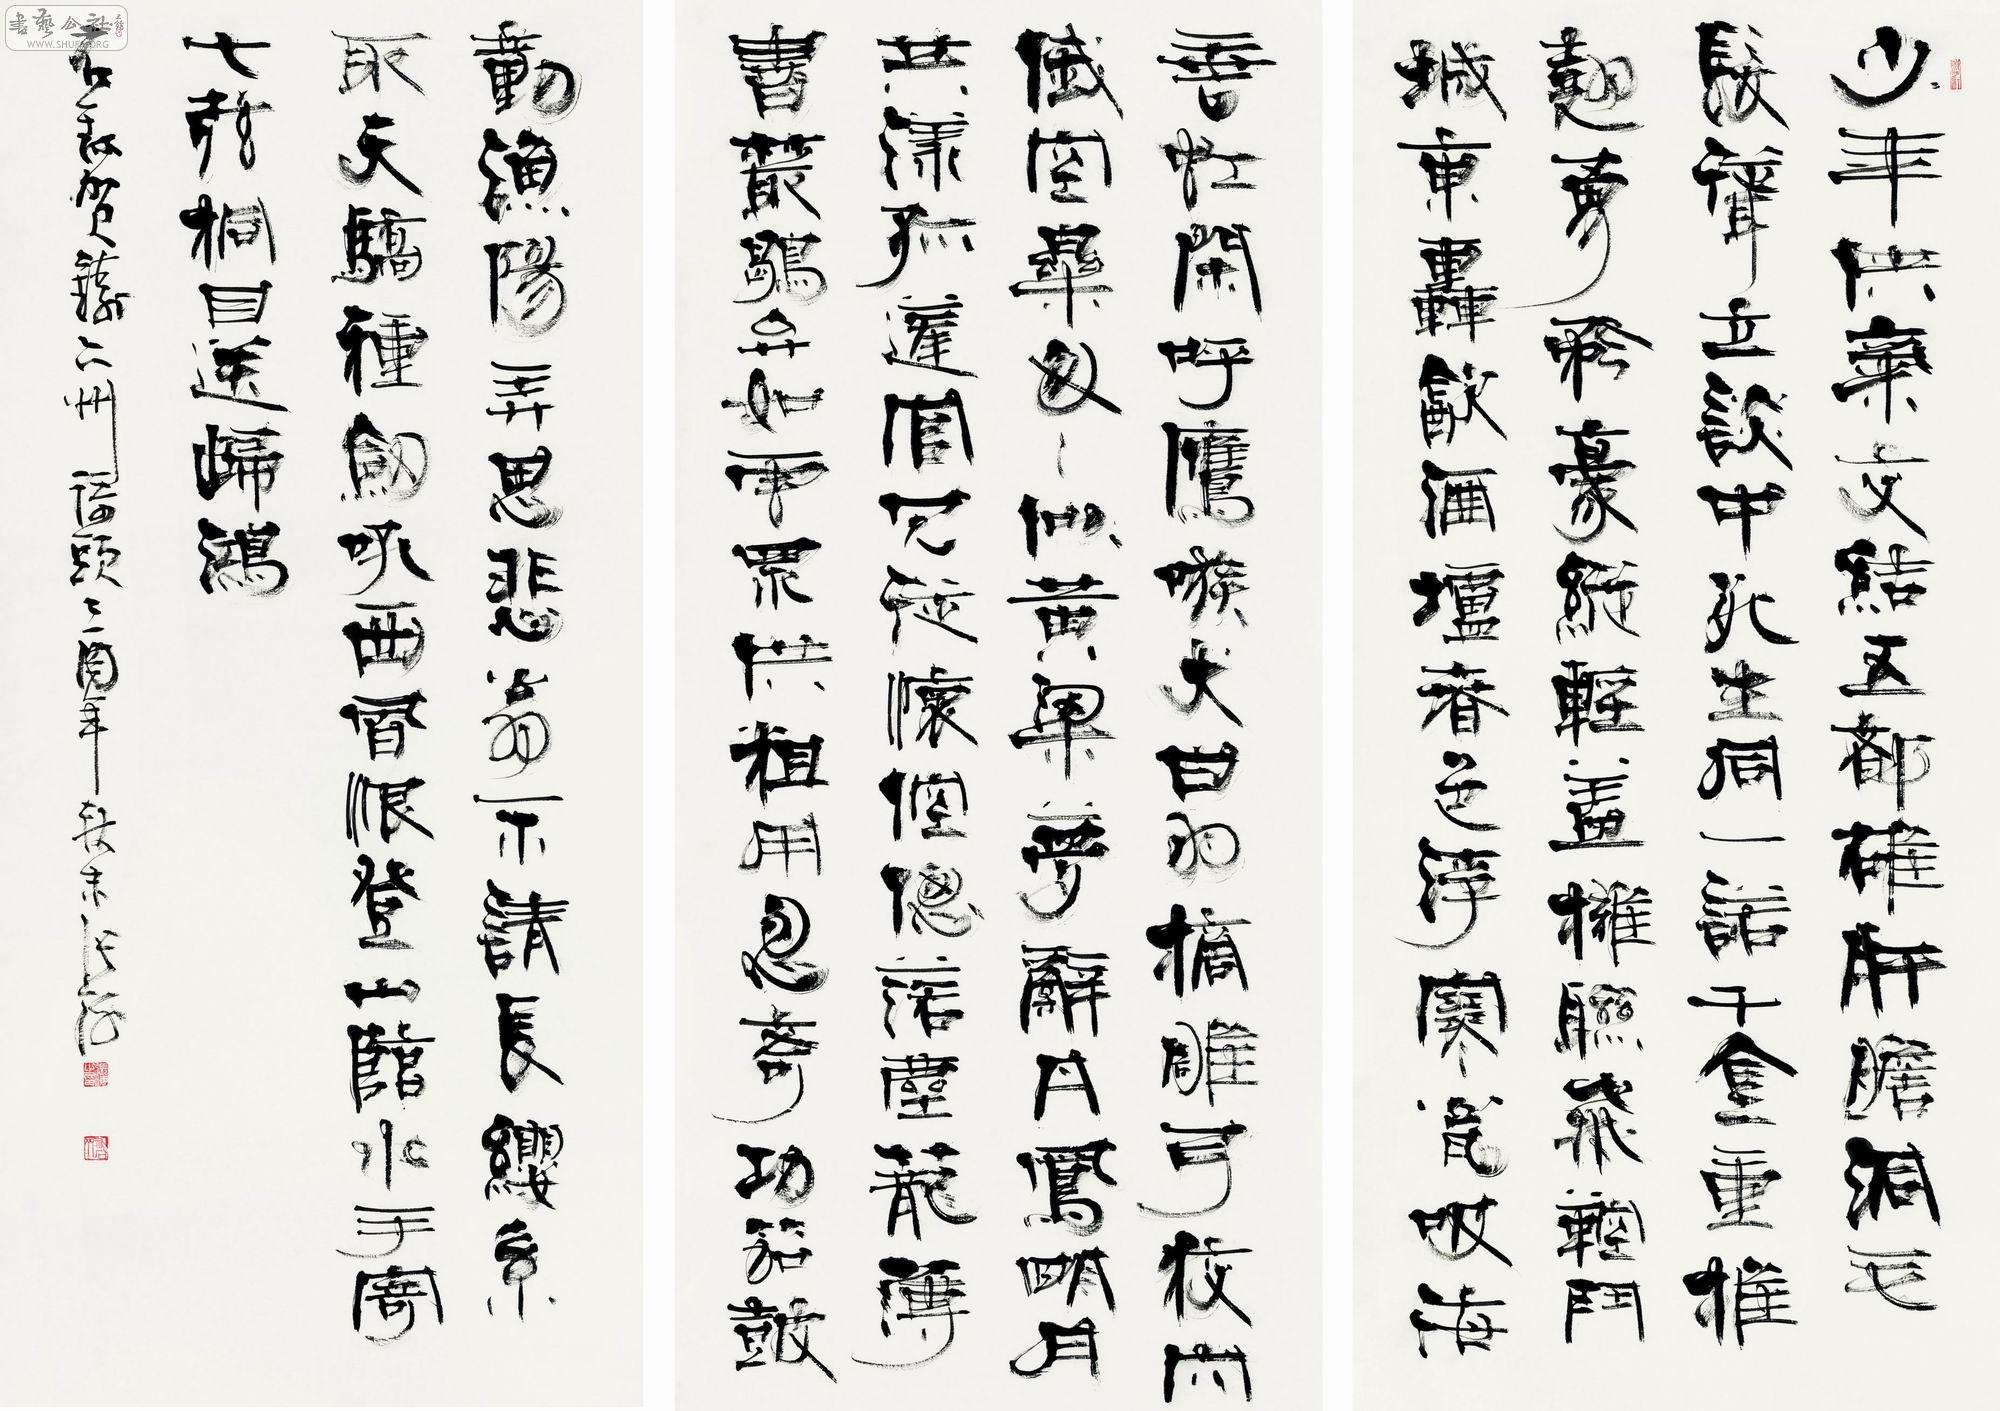 少年俠氣交結五都雄肝膽洞毛
髮聳立談中死生同一諾千金重推
翹勇矜豪縱輕蓋擁聯飛鞚鬥
城東轟飲酒壚春色浮寒甕吸海
垂虹閑呼鷹嗾犬白羽摘雕弓狡穴
俄空樂匆〻似黃粱夢辭丹鳳明月
共漾孤蓬官冗從懷倥傯落塵籠簿
書叢鶡弁如雲眾供粗用忽奇功笳鼓
動漁陽弄思悲翁不請長纓系
取天驕種劍吼西風恨登山臨水手寄
七弦桐目送歸鴻
右錄賀鑄六州歌頭乙酉年癸未張海
書藝公社
WWW.SHUFA.ORG